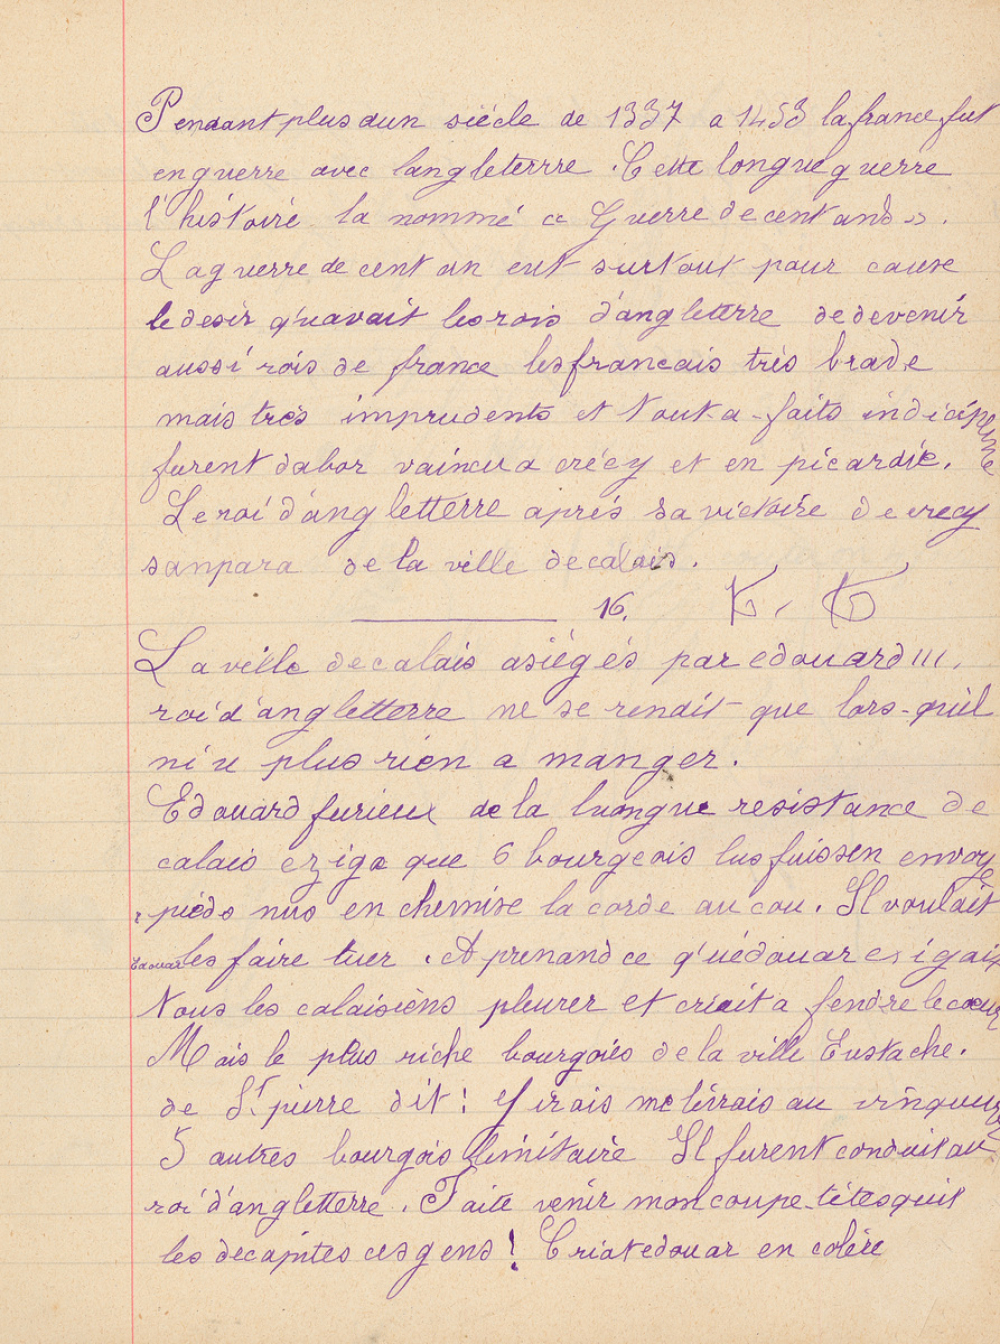 Pendant plus dun siécle de 1337 a 1453 la france fut
en guerre avec langleterrre. Cette longue guerre
l'histoiré la nommé « Guerre de cent ans ».
La guerre de cent an eut surtout pour cause
le desir q'uavait les rois d'angleterre de devenir
aussi rois de france les francais très brade
mais très imprudents et tout a-faits indicipline
furent dabor vaincu a crécy et en picardie.
Le roi d'angletterre aprés sa victoire de crecy
sanpara de la ville de calais.
16.
La ville de calais asiégés par edouard III.
roi d'angletterre ne se rendit que lors-qu'il
ni u plus rien a manger.
Edouard furieux de la luongue resistance de
calais eziga que 6 bourgeois lus fuissen envoye
pieds nus en chemise la corde au cou. Il voulait
Edouar les faire tuer. A prenand ce q'uédouar esigait
tous les calaisiens pleurer et criait a fendre le cœur
Mais le plus riche bourgois de la ville Eustache.
de St pierre dit! J'irais me lirrais au vinqueur
5 autres bourgois limitaire Il furent conduit au
roi d'angletterre. Faite venir mon coupe-têtes quil
les decapites ces gens! Criat edouar en colère